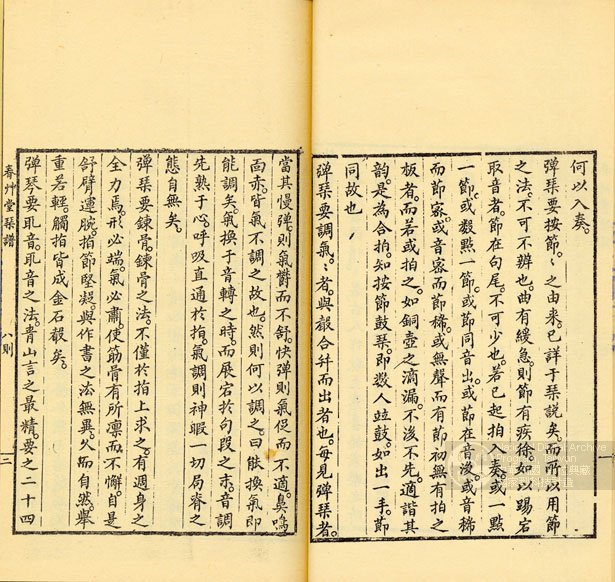 何以入奏。
彈琴要按節。節之由來。已詳于琴說矣。而所以用節
之法。不可不辨也。曲有緩急。則節有疾徐。如以賜宕
取音者。節在句尾。不可少也。若已起拍入奏。或一點
一節。或數點一節。或節同音出。或節在音後。或音稀
而節密。或音密而節稀。或無聲而有節。初無有拍之
板者。而若或拍之。如銅壺之滴漏。不後不先。適諧其
韵。是為合拍。知按節鼓琴。即数人竝鼓。如出一手。節
同故也
彈琴要調氣。氣者。與聲合幷而出者也。每見彈琴者。
當其慢彈。則氣鬱而不舒。快彈則氣促而不適。鼻鳴
面赤。皆氣不調之故也。然則何以調之。曰能換氣即
能調矣。氣換于音轉之時。而展宕於句段之末。音調
先熟于心。呼吸直通於指。氣調則神暇。一切局脊之
態自無矣。
彈琴要鍊骨。鍊骨之法。不僅於指上求之。有週身之
全力焉。形必端。氣必肅。使筋骨有所凛而不懈。自是
舒臂運腕。指節堅凝。與作書之法無異。久而自然。舉
重若輕。觸指皆成金石聲矣。
彈琴要取音。取音之法。青山言之最精。要之二十四
春艸堂琴譜
八則
二